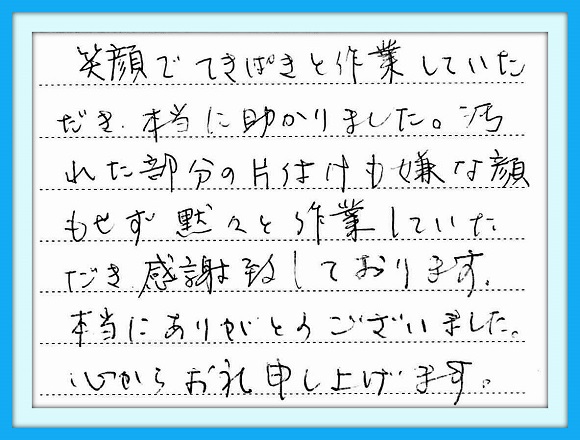 笑顔でてきぱきと作業していた
だき、本当に助かりました。汚
れた部分の片付けも嫌な顔
もせず黙々と作業していた
だき、感謝致しております。
本当にありがとうございました。
心からお礼申し上げます。